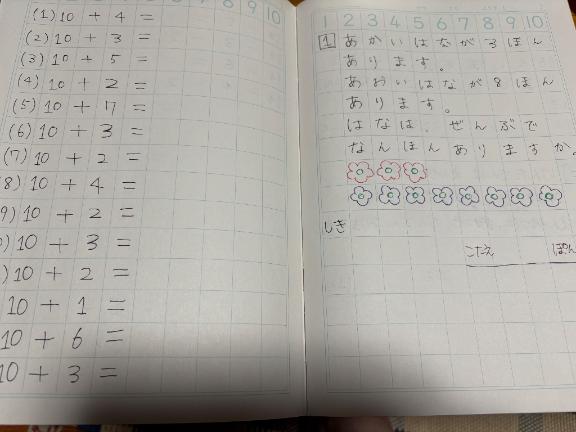 (1) 10 + 4 =
(2) 10 + 3 =
(3) 10 + 5 =
(4) 10 + 2 =
(5) 10 + 17 =
(6) 10 + 3 =
(7) 10 + 2 =
8) 10 + 4 =
9) 10 + 2 =
) 10 + 3 =
) 10 + 2 =
10 + 1 =
10 + 6 =
10 + 3 =
1 2 3 4 5 6 7 8 9 10
1 あかいはなが3ぼん
あります。
あおいはなが8ほん
あります。
はなは、ぜんぶで
なんぼんありますか。
しき
こたえ ぽん